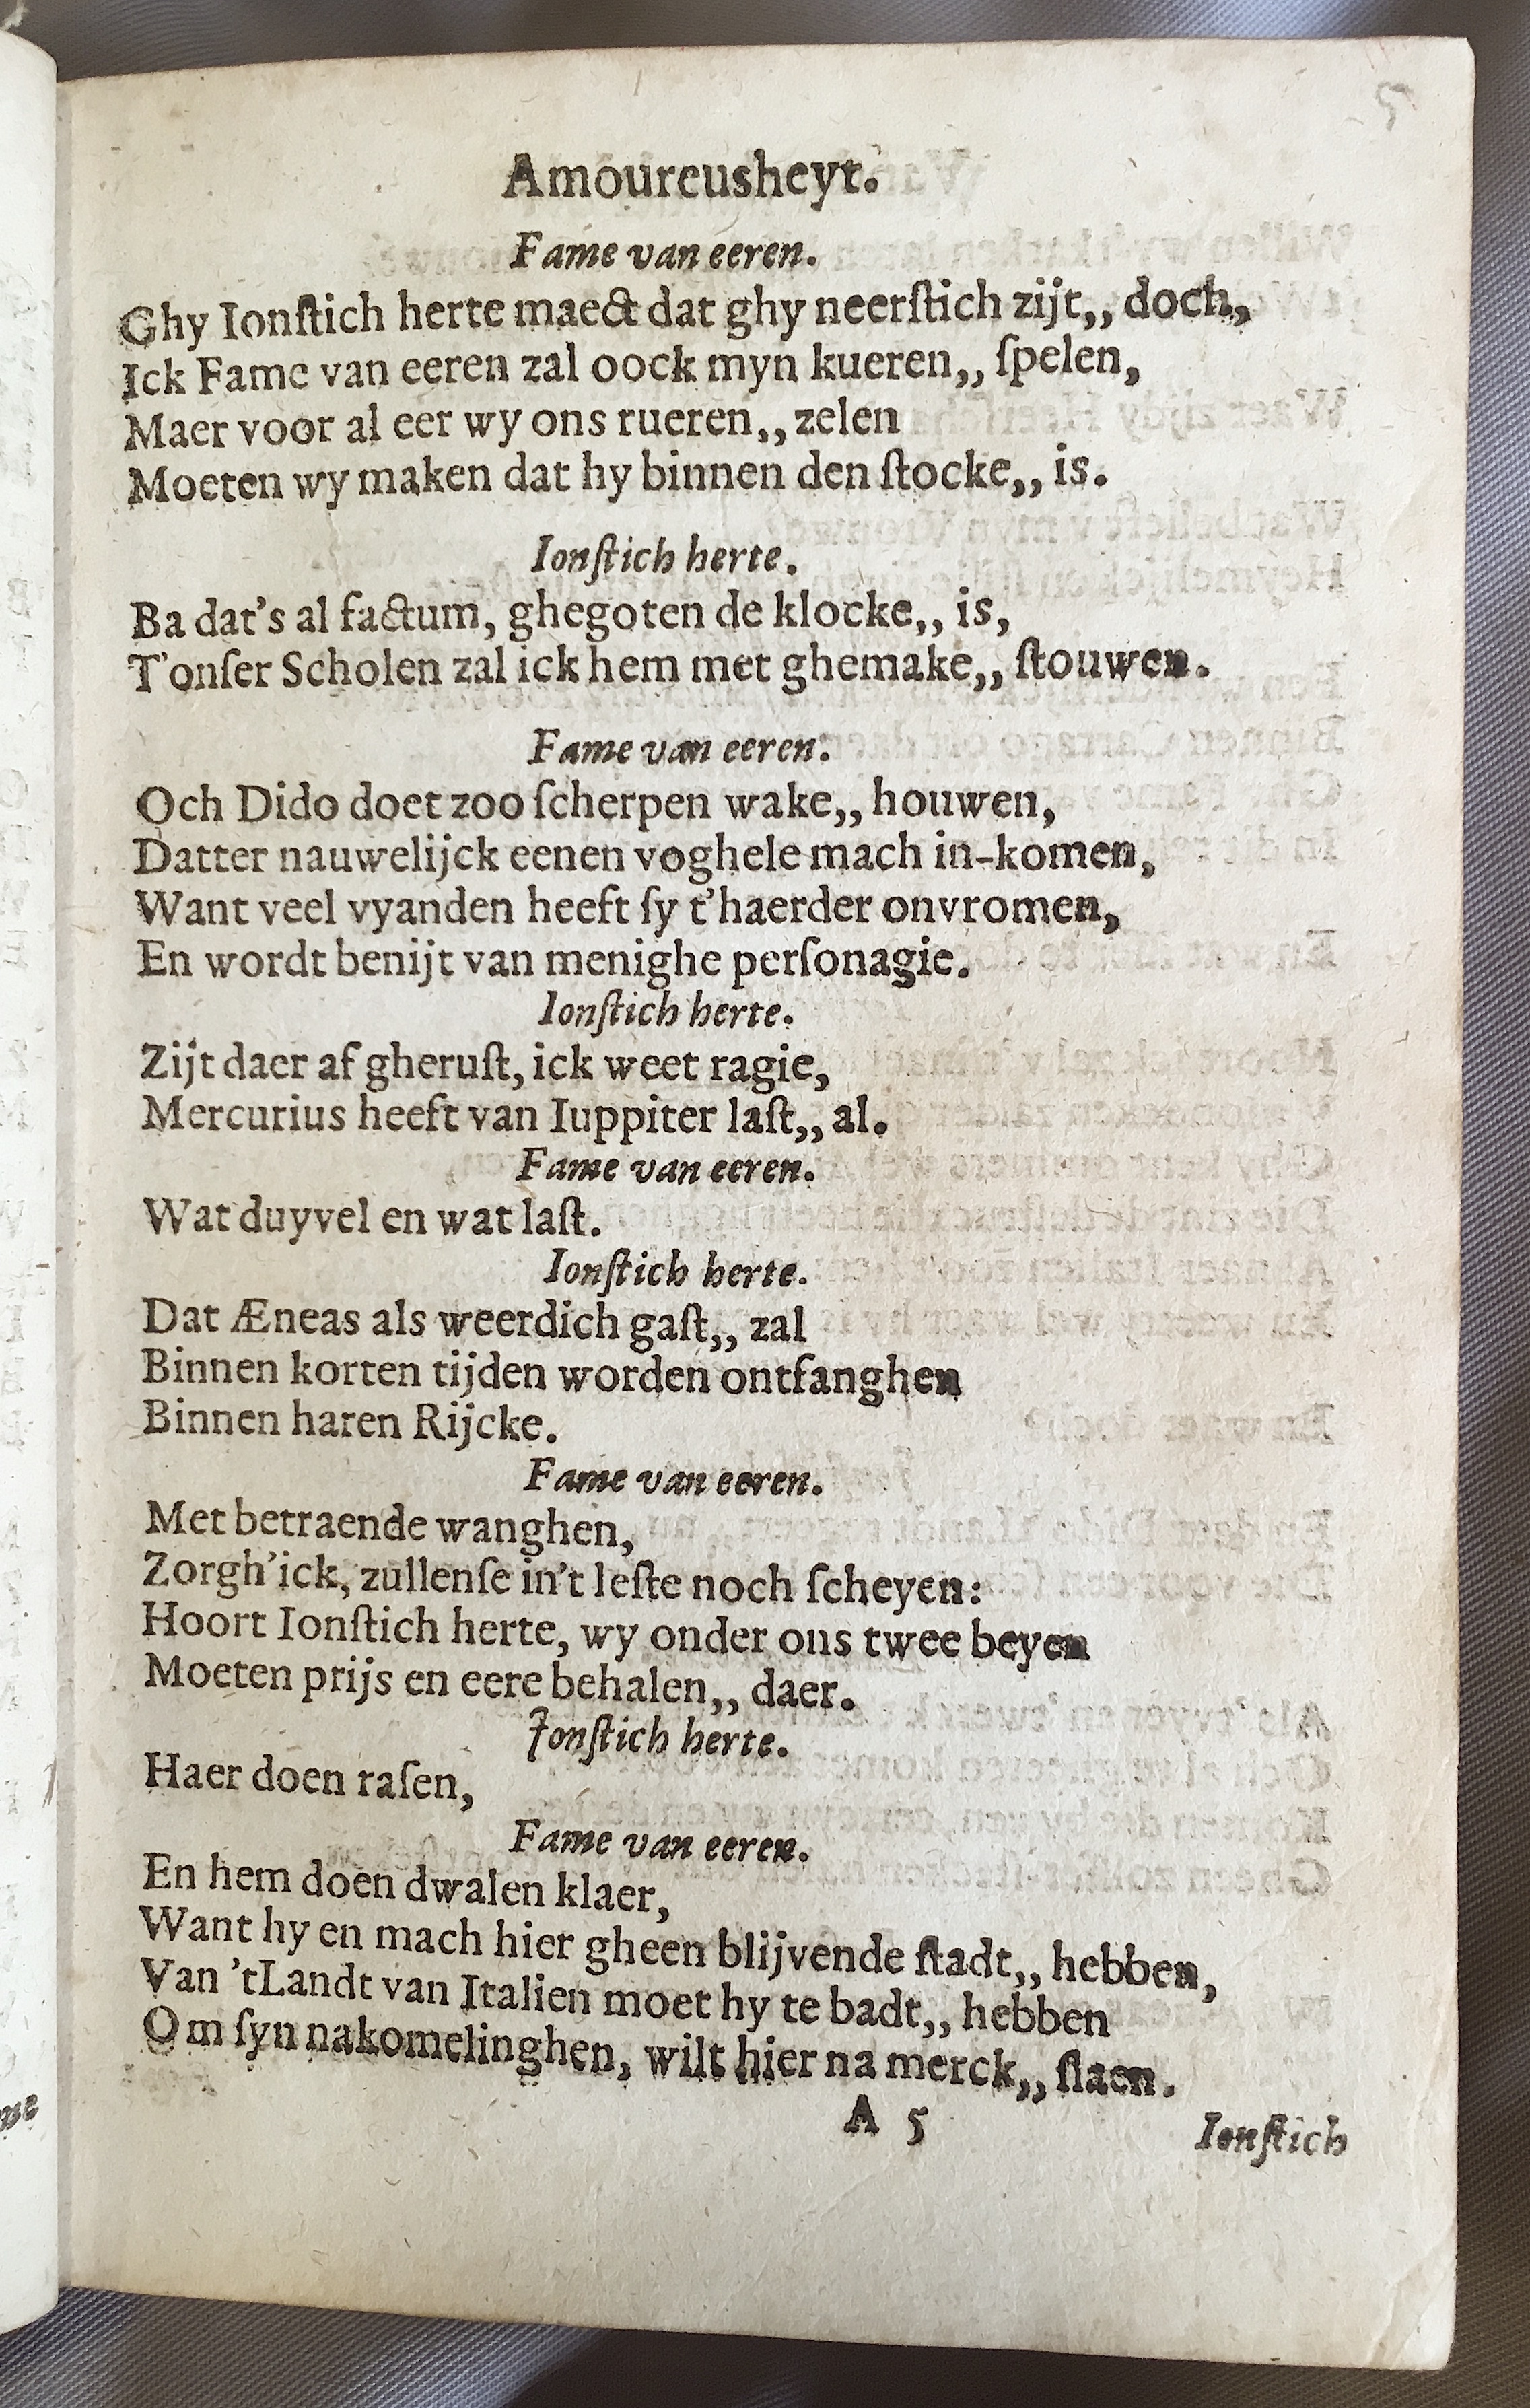 Amoureusheyt.
Fame van eeren.
Ghy Ionſtich herte maect dat ghy neerſtich zijt,, doch,
Ick Fame van eeren zal oock myn kueren,, ſpelen,
Maer voor al eer wy ons rueren,, zelen
Moeten wy maken dat hy binnen den ſtocke,, is.
Ionſtich herte.
Ba dat's al factum, ghegoten de klocke,, is,
T'onſer Scholen zal ick hem met ghemake,, ſtouwen.
Fame van eeren.
Och Dido doet zoo ſcherpen wake,, houwen,
Datter nauwelijck eenen voghele mach in-komen,
Want veel vyanden heeft ſy t'haerder onvromen,
En wordt benijt van menighe perſonagie.
Ionſtich herte.
Zijt daer af gheruſt, ick weet ragie,
Mercurius heeft van Iuppiter laſt,, al.
Fame van eeren.
Wat duyvel en wat laſt.
Ionſtich herte.
Dat Æneas als weerdich gaſt,, zal
Binnen korten tijden worden ontfanghen
Binnen haren Rijcke.
Fame van eeren.
Met betraende wanghen,
Zorgh'ick, zullenſe in't leſte noch ſcheyen:
Hoort Ionſtich herte, wy onder ons twee beyen
Moeten prijs en eere behalen,, daer.
Jonſtich herte.
Haer doen raſen,
Fame van eeren.
En hem doen dwalen klaer,
Want hy en mach hier gheen blijvende ſtadt,, hebben,
Van 'tLandt van Italien moet hy te badt,, hebben
Om ſyn nakomelinghen, wilt hier na merck,, ſlaen.
A 5
Ionſtich